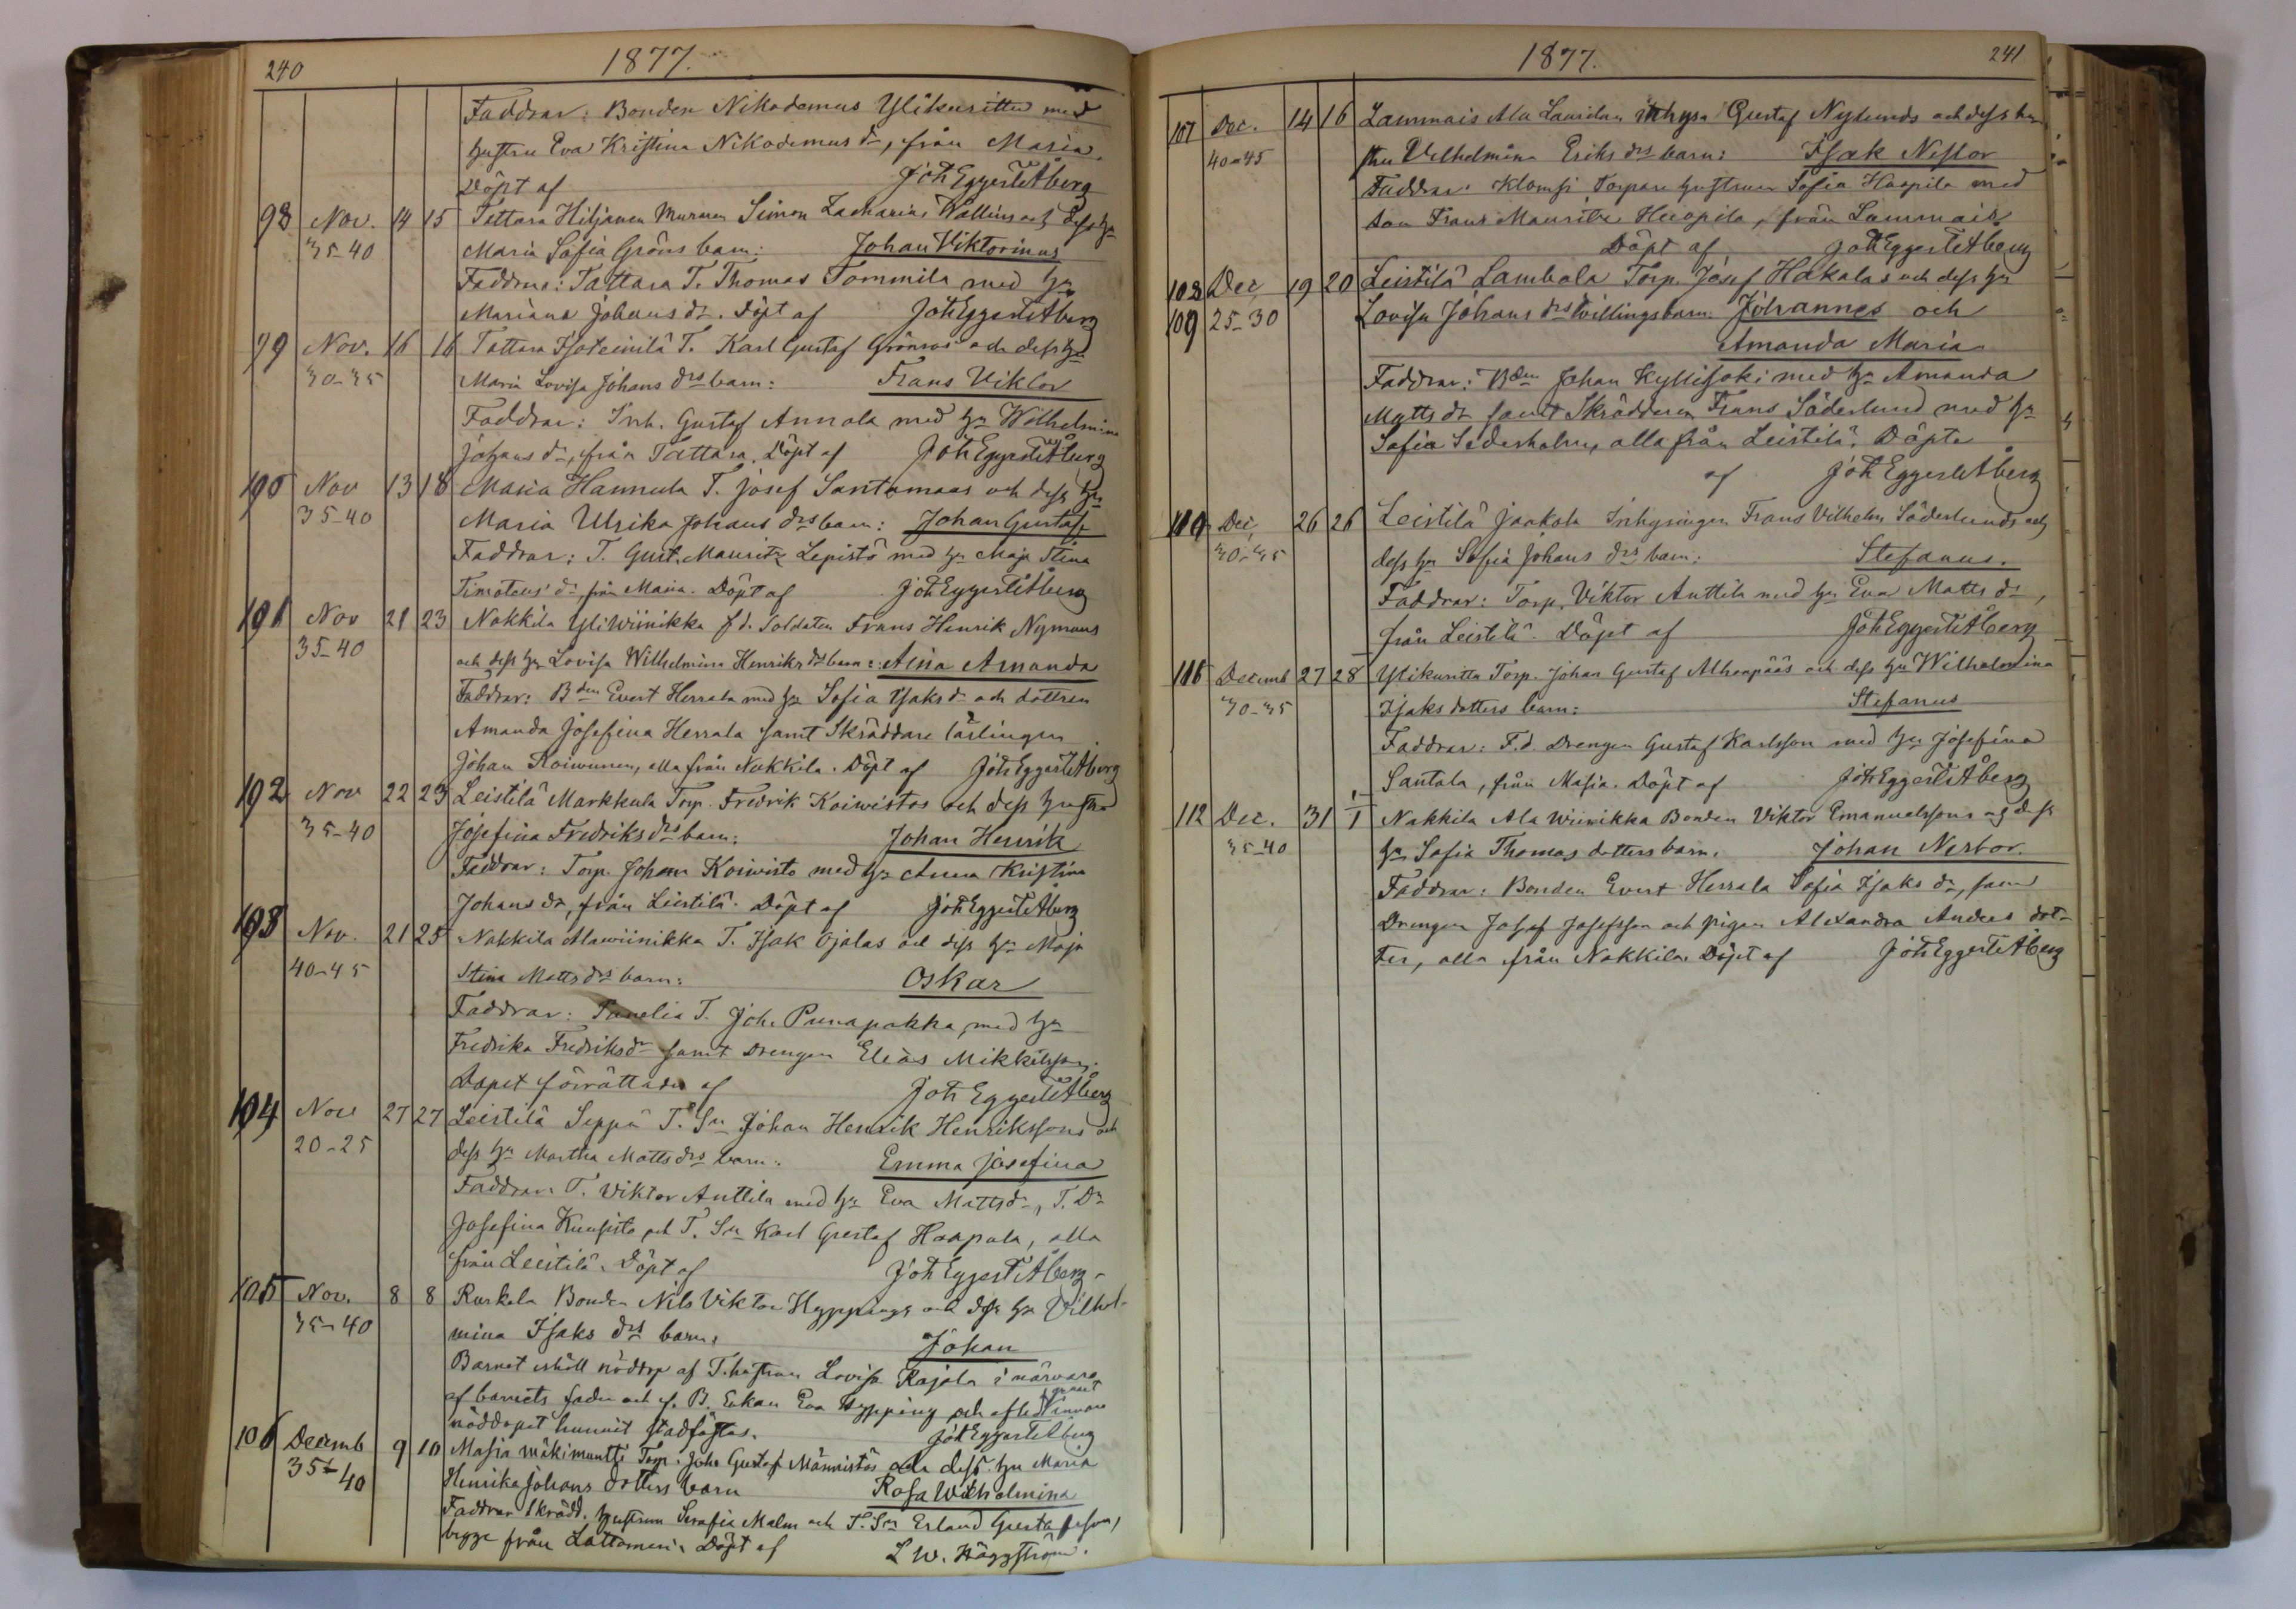 240
1877.
Faddrar: Bonden Nikodemus Ylikuritta med
hustru Eva Kristina Nikodemus dr, från Masia.
Döpt af Joh Eggert Åberg
98 Nov. 14 15 Tattara Hiljanen Muraren Simon Zacharias Wallins och dess hu
35-40 Maria Sofia Gröns barn: Johan Viktorinus
Faddrar: Tattara T. Thomas Tommila med hu
Mariana Johans dr. Döpt af Joh Eggert Åberg
99 Nov. 16 16 Tattara T. Karl Gustaf Grönroos och dess hu
30-35 Maria Lovisa Johans drs barn: Frans Viktor
Faddrar: Inh. Gustaf Annala med hu Wilhelmina
Johans dr, från Tattara. Döpt af Joh Eggert Åberg
100 Nov 13 18 Masia Hannula T. Josef Santamaas och dess hu
35-40 Maria Ulrika Johans drs barn: Johan Gustaf
Faddrar: T. Gust. Mauritz Lepistö med hu Maja Stina
Timoteus dr från Masia. Döpt af Joh Eggert Åberg
101 Nov 21 23 Nakkila Yli Wiinikka f d. Soldaten Frans Henrik Nymans
35-40 och dess hu Lovisa Wilhelmina Henriks drs barn: Aina Amanda
Faddrar: Bden Evert Herrala med hu Sofia Isaks dr och dottren
Amanda Josefina Herrala samt Skräddare lärlingen
Johan Roiwunen, alla från Nakkila. Döpt af Joh Eggert Åberg
102 Nov 22 23 Leistilä Markkula Torp. Fredrik Koiwistos och dess hustru
35-40 Josefina Fredriks drs barn: Johan Henrik
Faddrar: Torp. Johan Koiwisto med hu Anna Kristina
Johans dr, från Leistilä. Döpt af Joh Eggert Åberg
103 Nov. 21 25 Nakkila Alawiinikka T. Isak Ojalas och dess hu Maja
40-45 Stina Matts drs barn: Oskar
Faddrar: Panelia T. Joh. Punapakka, med hu
Fredrika Fredriksdr samt Drengen Elias Mikkelsson.
Dopet förrättades af Joh Eggert Åberg
104 Nov 27 27 Leistilä Seppä T. Sn Johan Henrik Henrikssons och
20-25 dess hu Martha Matts drs barn: Emma Josefina
Faddrar T. Viktor Anttila med hu Eva Mattsdr, T. Dr
Josefina Kuusisto och T. Sn Karl Gustaf Haapala, alla
från Leistilä. Döpt af Joh Eggert Åberg
105 Nov. 8 8 Ruskela Bonden Nils Viktor Hyppings och dess hu Vilhel-
35-40 mina Isaks drs barn: Johan
Barnet erhöll nöddop af T. hustrun Lovisa Rajala i närvaro
af barnets fader och f. B. Enkan Eva Hypping och afled innan
nöddopet hunnit stadfästas. Joh Eggert Åberg
106 Decemb 9 10 Masia Mäkimuntti Torp. Joh. Gustaf Männistös och dess hu Maria
35-40 Henrika Johans dotters barn Rosa Wilhelmina
Faddrar Skrädd. hustrun Serafia Malm och T. Sn Erland Gustafsson,
begge från Lattomeri. Döpt af L W. Häggström.
1877. 241
107 Dec. 14 16 Lammais Ala Laurilan inhyse Gustaf Nylunds och dess hu
40-45 stru Vilhelmina Eriks drs barn: Isak Nestor
Faddrar: Klomsi Torpare hustrun Sofia Haapila med
son Frans Mauritz Haapila, från Lammais
Döpt af Joh Eggert Åberg
108 Dec 19 20 Leistilä Lambola Torp. Josef Hakalas och dess hu
109 25-30 Lovisa Johans drs tvillingsbarn: Johannes och
Amanda Maria
Faddrar: Bden Johan Kyllijoki med hu Amanda
Matts dr samt Skräddaren Frans Söderlund med hu
Sofia Söderholm, alla från Leistilä. Döpte
af Joh Eggert Åberg
110 Dec, 26 26 Leistilä Jaakola Inhysingen Frans Vilhelm Söderlunds och
30-35 dess hu Sofia Johans drs barn: Stefanus.
Faddrar: Torp. Viktor Anttila med hu Eva Matts dr,
från Leistilä. Döpt af Joh Eggert Åberg
Decemb 27 28 Ylikuritta Torp. Johan Gustaf och dess hu Wilhelmina
30-35 Isaks dotters barn: Stefanus
Faddrar: F.d. Drengen Gustaf Karlsson med hu Josefina
Santala, från Masia. Döpt af Joh Eggert Åberg
112 Dec. 31 1 Nakkila Ala Wiinikka Bonden Viktor Emanuelssons och dess
35-40 hu Sofia Thomas dotters barn. Johan Nestor.
Faddrar: Bonden Evert Herrala Sofia Isaks dr, samt
Drengen Josef Josefsson och pigan Alexandra Anders dot-
ter, alla från Nakkila. Döpt af Joh Eggert Åberg